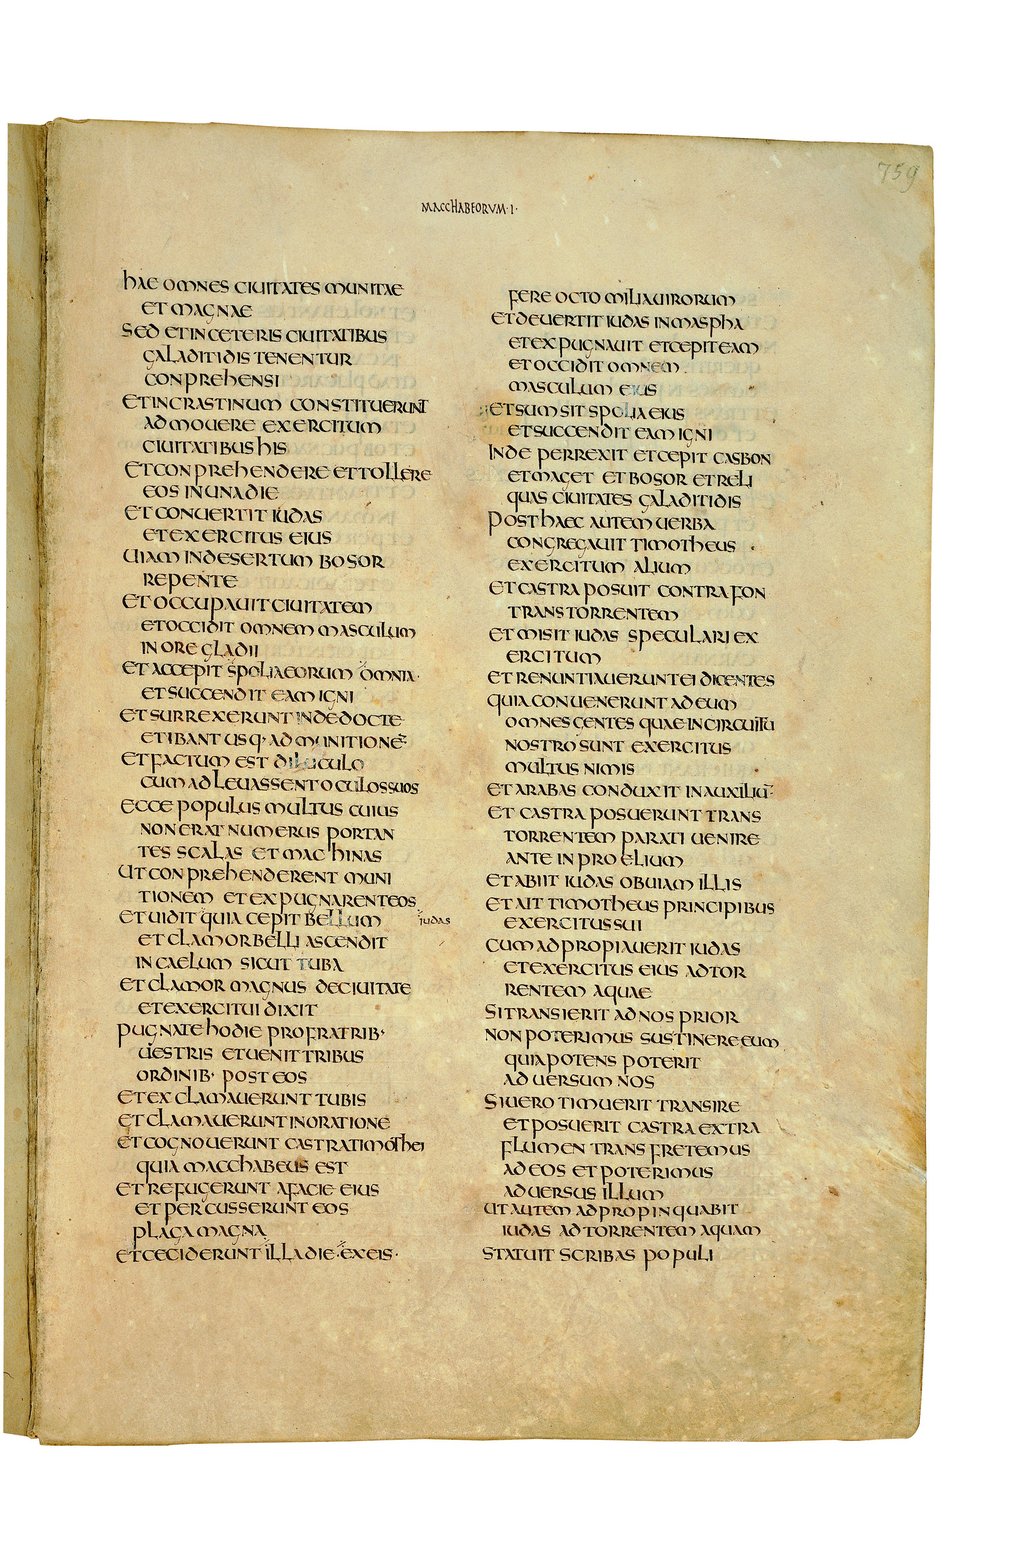 759
MACCHABEORVM·I·
hAE OMNES CIUITATES MUNITAE
ET MAGNAE
SED ET IN CETERIS CIUITATIBUS
GALADITIDIS TENENTUR
CONPREHENSI
ET IN CRASTINUM CONSTITUERUNT
ADMOUERE EXERCITUM
CIUITATIBUS HIS
ET CONPREHENDERE ET TOLLERE
EOS IN UNA DIE
ET CONUERTIT IUDAS
ET EXERCITUS EIUS
UIAM IN DESERTUM BOSOR
REPENTE
ET OCCUPAUIT CIUITATEM
ET OCCIDIT OMNEM MASCULUM
IN ORE GLADII
ET ACCEPIT SPOLIA EORUM OMNIA·
ET SUCCENDIT EAM IGNI
ET SURREXERUNT INDE NOCTE
ET IBANT USQ· AD MUNITIONĒ
ET FACTUM EST DILUCULO
CUM ADLEUASSENT OCULOS SUOS
ECCE POPULUS MULTUS CUIUS
NON ERAT NUMERUS PORTAN
TES SCALAS ET MACHINAS
UT CONPREHENDERENT MUNI
TIONEM ET EXPUGNARENT EOS
ET UIDIT QUIA CEPIT BELLUM IUDAS
ET CLAMOR BELLI ASCENDIT
IN CAELUM SICUT TUBA
ET CLAMOR MAGNUS DE CIUITATE
ET EXERCITUI DIXIT
PUGNATE HODIE PRO FRATRIB·
UESTRIS ET UENIT TRIBUS
ORDINIB· POST EOS
ET EXCLAMAUERUNT TUBIS
ET CLAMAUERUNT IN ORATIONE
ET COGNOUERUNT CASTRA TIMOTHEI
QUIA MACCHABEUS EST
ET REFUGERUNT A FACIE EIUS
ET PERCUSSERUNT EOS
PLAGA MAGNA
ET CECIDERUNT ILLA DIE EX EIS·
FERE OCTO MILIA UIRORUM
ET DEUERTIT IUDAS IN MASPHA
ET EXPUGNAUIT ET CEPIT EAM
ET OCCIDIT OMNEM
MASCULUM EIUS
ET SUMSIT SPOLIA EIUS
ET SUCCENDIT EAM IGNI
INDE PERREXIT ET CEPIT CASBON
ET MAGET ET BOSOR ET RELI
QUAS CIUITATES GALADITIDIS
POST HAEC AUTEM UERBA
CONGREGAUIT TIMOTHEUS
EXERCITUM ALIUM
ET CASTRA POSUIT CONTRA FON
TRANS TORRENTEM
ET MISIT IUDAS SPECULARI EX
ERCITUM
ET RENUNTIAUERUNT EI DICENTES
QUIA CONUENERUNT AD EUM
OMNES GENTES QUAE IN CIRCUITU
NOSTRO SUNT EXERCITUS
MULTUS NIMIS
ET ARABAS CONDUXIT IN AUXILIŪ·
ET CASTRA POSUERUNT TRANS
TORRENTEM PARATI UENIRE
ANTE IN PROELIUM
ET ABIIT IUDAS OBUIAM ILLIS
ET AIT TIMOTHEUS PRINCIPIBUS
EXERCITUS SUI
CUM ADPROPIAUERIT IUDAS
ET EXERCITUS EIUS AD TOR
RENTEM AQUAE
SI TRANSIERIT AD NOS PRIOR
NON POTERIMUS SUSTINERE EUM
QUIA POTENS POTERIT
ADUERSUM NOS
SI UERO TIMUERIT TRANSIRE
ET POSUERIT CASTRA EXTRA
FLUMEN TRANSFRETEMUS
AD EOS ET POTERIMUS
ADUERSUS ILLUM
UT AUTEM ADPROPINQUABIT
IUDAS AD TORRENTEM AQUAM
STATUIT SCRIBAS POPULI